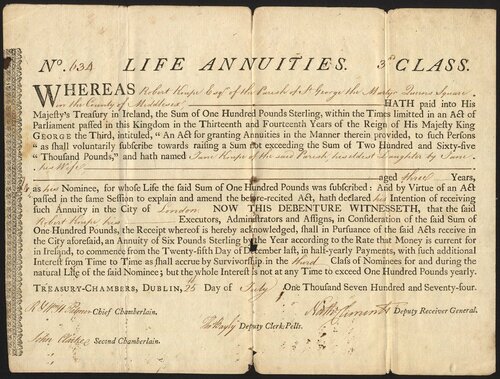 No. 634 LIFE ANNUITIES. 3d CLASS.
WHEREAS Robert Knipe Esqr. of the Parish of St. George the Martyr Queens Square
in the County of Middlesex HATH paid into His
Majesty's Treasury in Ireland, the Sum of One Hundred Pounds Sterling, within the Times limited in an Act of
Parliament passed in this Kingdom in the Thirteenth and Fourteenth Years of the Reign of His Majesty King
GEORGE the Third, intituled, "An Act for granting Annuities in the Manner therein provided, to such Persons
"as shall voluntarily subscribe towards raising a Sum not exceeding the Sum of Two Hundred and Sixty-five
"Thousand Pounds," and hath named Jane Knipe of the said Parish, his eldest Daughter by Jane
his Wife
aged three Years,
as his Nominee, for whose Life the said Sum of One Hundred Pounds was subscribed: And by Virtue of an Act
passed in the same Session to explain and amend the before-recited Act, hath declared his Intention of receiving
such Annuity in the City of London. NOW THIS DEBENTURE WITNESSETH, that the said
Robert Knipe his Executors, Administrators and Assigns, in Consideration of the said Sum of
One Hundred Pounds, the Receipt whereof is hereby acknowledged, shall in Pursuance of the said Acts receive in
the City aforesaid, an Annuity of Six Pounds Sterling by the Year according to the Rate that Money is current for
in Ireland, to commence from the Twenty-fifth Day of December last, in half-yearly Payments, with such additional
Interest from Time to Time as shall accrue by Survivorship in the third Class of Nominees for and during the
natural Life of the said Nominee; but the whole Interest is not at any Time to exceed One Hundred Pounds yearly.
TREASURY-CHAMBERS, DUBLIN, Day of July One Thousand Seven Hundred and Seventy-four.
Chief Chamberlain. Deputy Clerk Pells. Nath Clements Deputy Receiver General.
John Second Chamberlain.